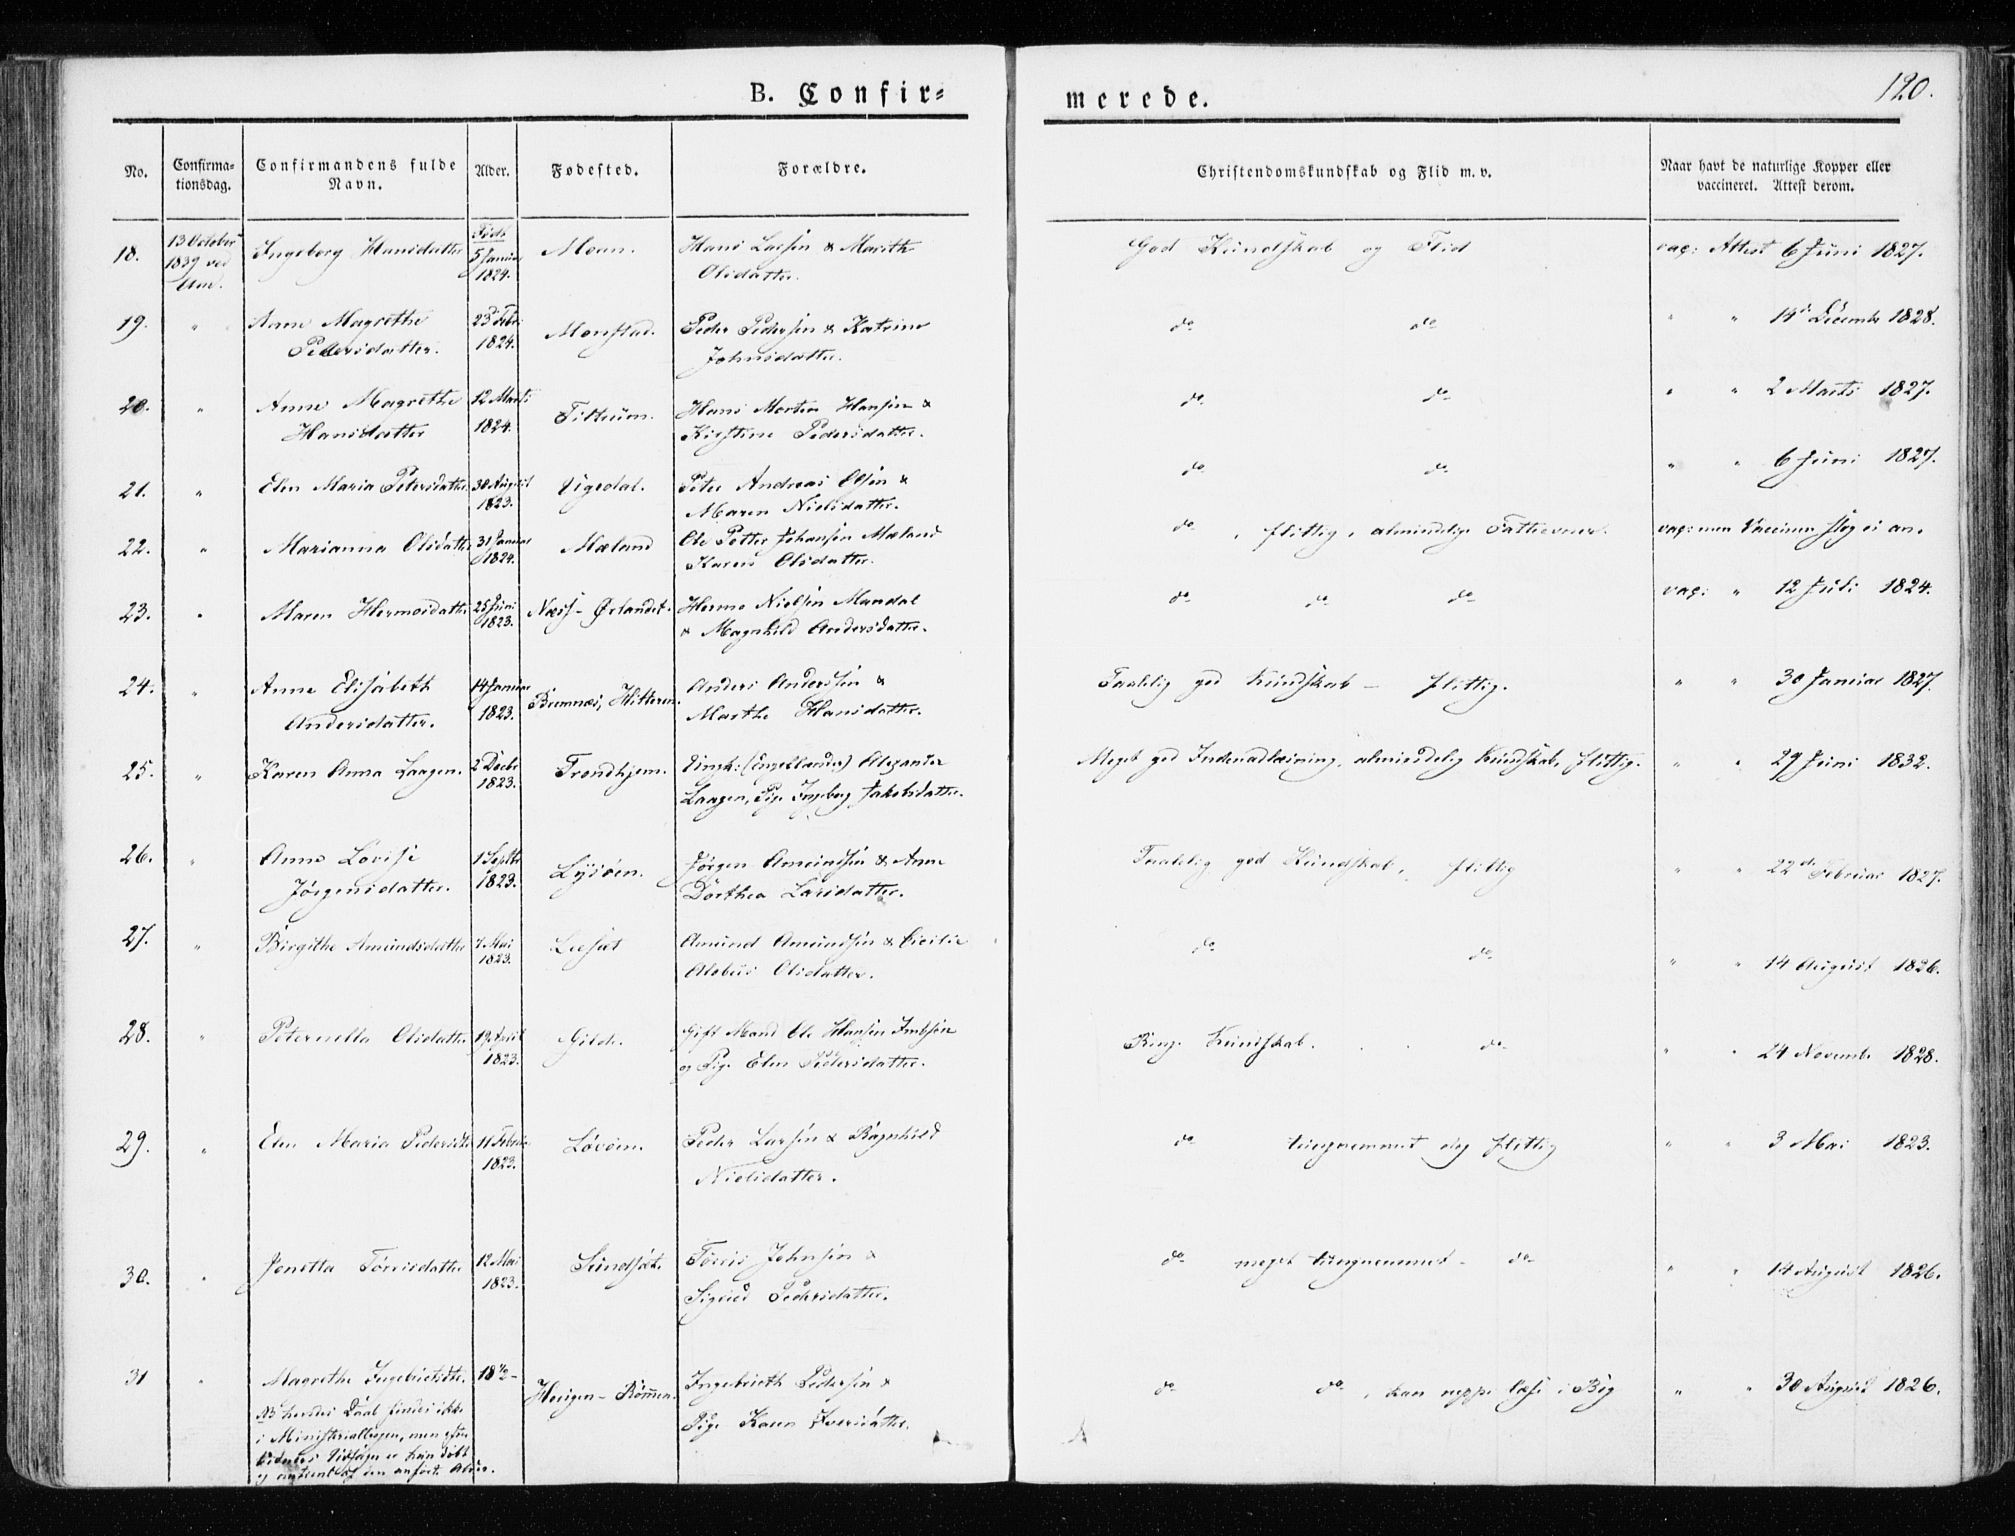 B. Confir-
merede.
120.
No.
Confirma-
tionsdag.
Confirmandens fulde
Navn.
Alder.
Fødested.
Forældre.
Christendomskundskab og Flid m. v.
Naar havt de naturlige Kopper eller
vaccineret. Attest derom.
18. 13 October Ingeborg Hansdatter Født Hans Larsen & Marith God Kundskab og Flid vac: Attest 6 Juni 1827.
1839 ved 5 Januar Olsdatter.
1824.
19. " Anne Magrethe 23 Febr Monstad. Peder Pedersen & Katrine do do " " 14d Decembr 1828.
Pedersdatter. 1824. Johnsdatter.
20. " Anne Magrethe 12 Marts Titrum. Hans Morten Hansen & do do " " 2 Marts 1827.
Hansdatter 1824. Kirstine Pedersdatter.
21. " Elen Maria Petersdatter 30 August Ugedal. Peter Andreas Olsen & do do " " 6 Juni 1827.
1823. Maren Nielsdatter.
22. " Marianna Olsdatter 31 Januar Mæland Ole Petter Johansen Mæland do, flittig, almindelige Fatteevner. vac: men Vaccinen slog ei an.
1824. Karen Olsdatter.
23. " Maren Hermosdatter 25 Juni Næss-Ørlandet. Hermo Nielsen Mandal do do do vac: " 12 Juli 1824.
1823. & Magnhild Andersdatter.
24. " Anne Elisabeth 14 Januar Bremnæs, Hitteren. Anders Andersen & Taalelig god Kundskab - flittig. " " 30 Januar 1827.
Andersdatter. 1823. Marthe Hansdatter.
25. " Karen Anna Laagen. 2 Decbr Trondhjem. (Engellænder) Alexander Meget god Indenadlæsning, almindelig Kundskab, flittig. " " 29 Juni 1832.
1823. Laagen, Pige Ingeborg Jakobsdatter.
26. " Anne Lovise 1 Septbr Lysøen. Jørgen Amundsen & Anne Taalelig god Kundskab, flittig " " 22de Februar 1827.
Jørgensdatter. 1823. Dorthea Larsdatter.
27. " Birgithe Amundsdatter 7 Mai Amund Amundsen & Cicilie do do " " 14 August 1826.
1823. Olsdatter.
28. " Peternella Olsdatter 19 April Gilde. Gift Mand Ole Hansen do " " 24 Novembr 1828.
1823. og Pige Elen Pedersdatter. Ring. Kundskab.
29. " Elen Maria Pedersdtr 11 Februar Peder Larsen & Ragnhild do tungnemmet, dog flittig " " 3 Mai 1823.
1823. Nielsdatter.
30. " Jonetta Tørrisdatter 12 Mai Sundsæt. Tørris Johnsen & do meget tungnemmet - do " " 14 August 1826.
1823. Sigrid Pedersdatter.
31 " Magrethe Ingebrietsdtr. Ingebrieth Pedersen & do do, kan neppe læse i Bog " " 30 August 1826.
NB hendes Daab findes ikke Pige Karen Iversdatter.
i Ministerialbogen, men